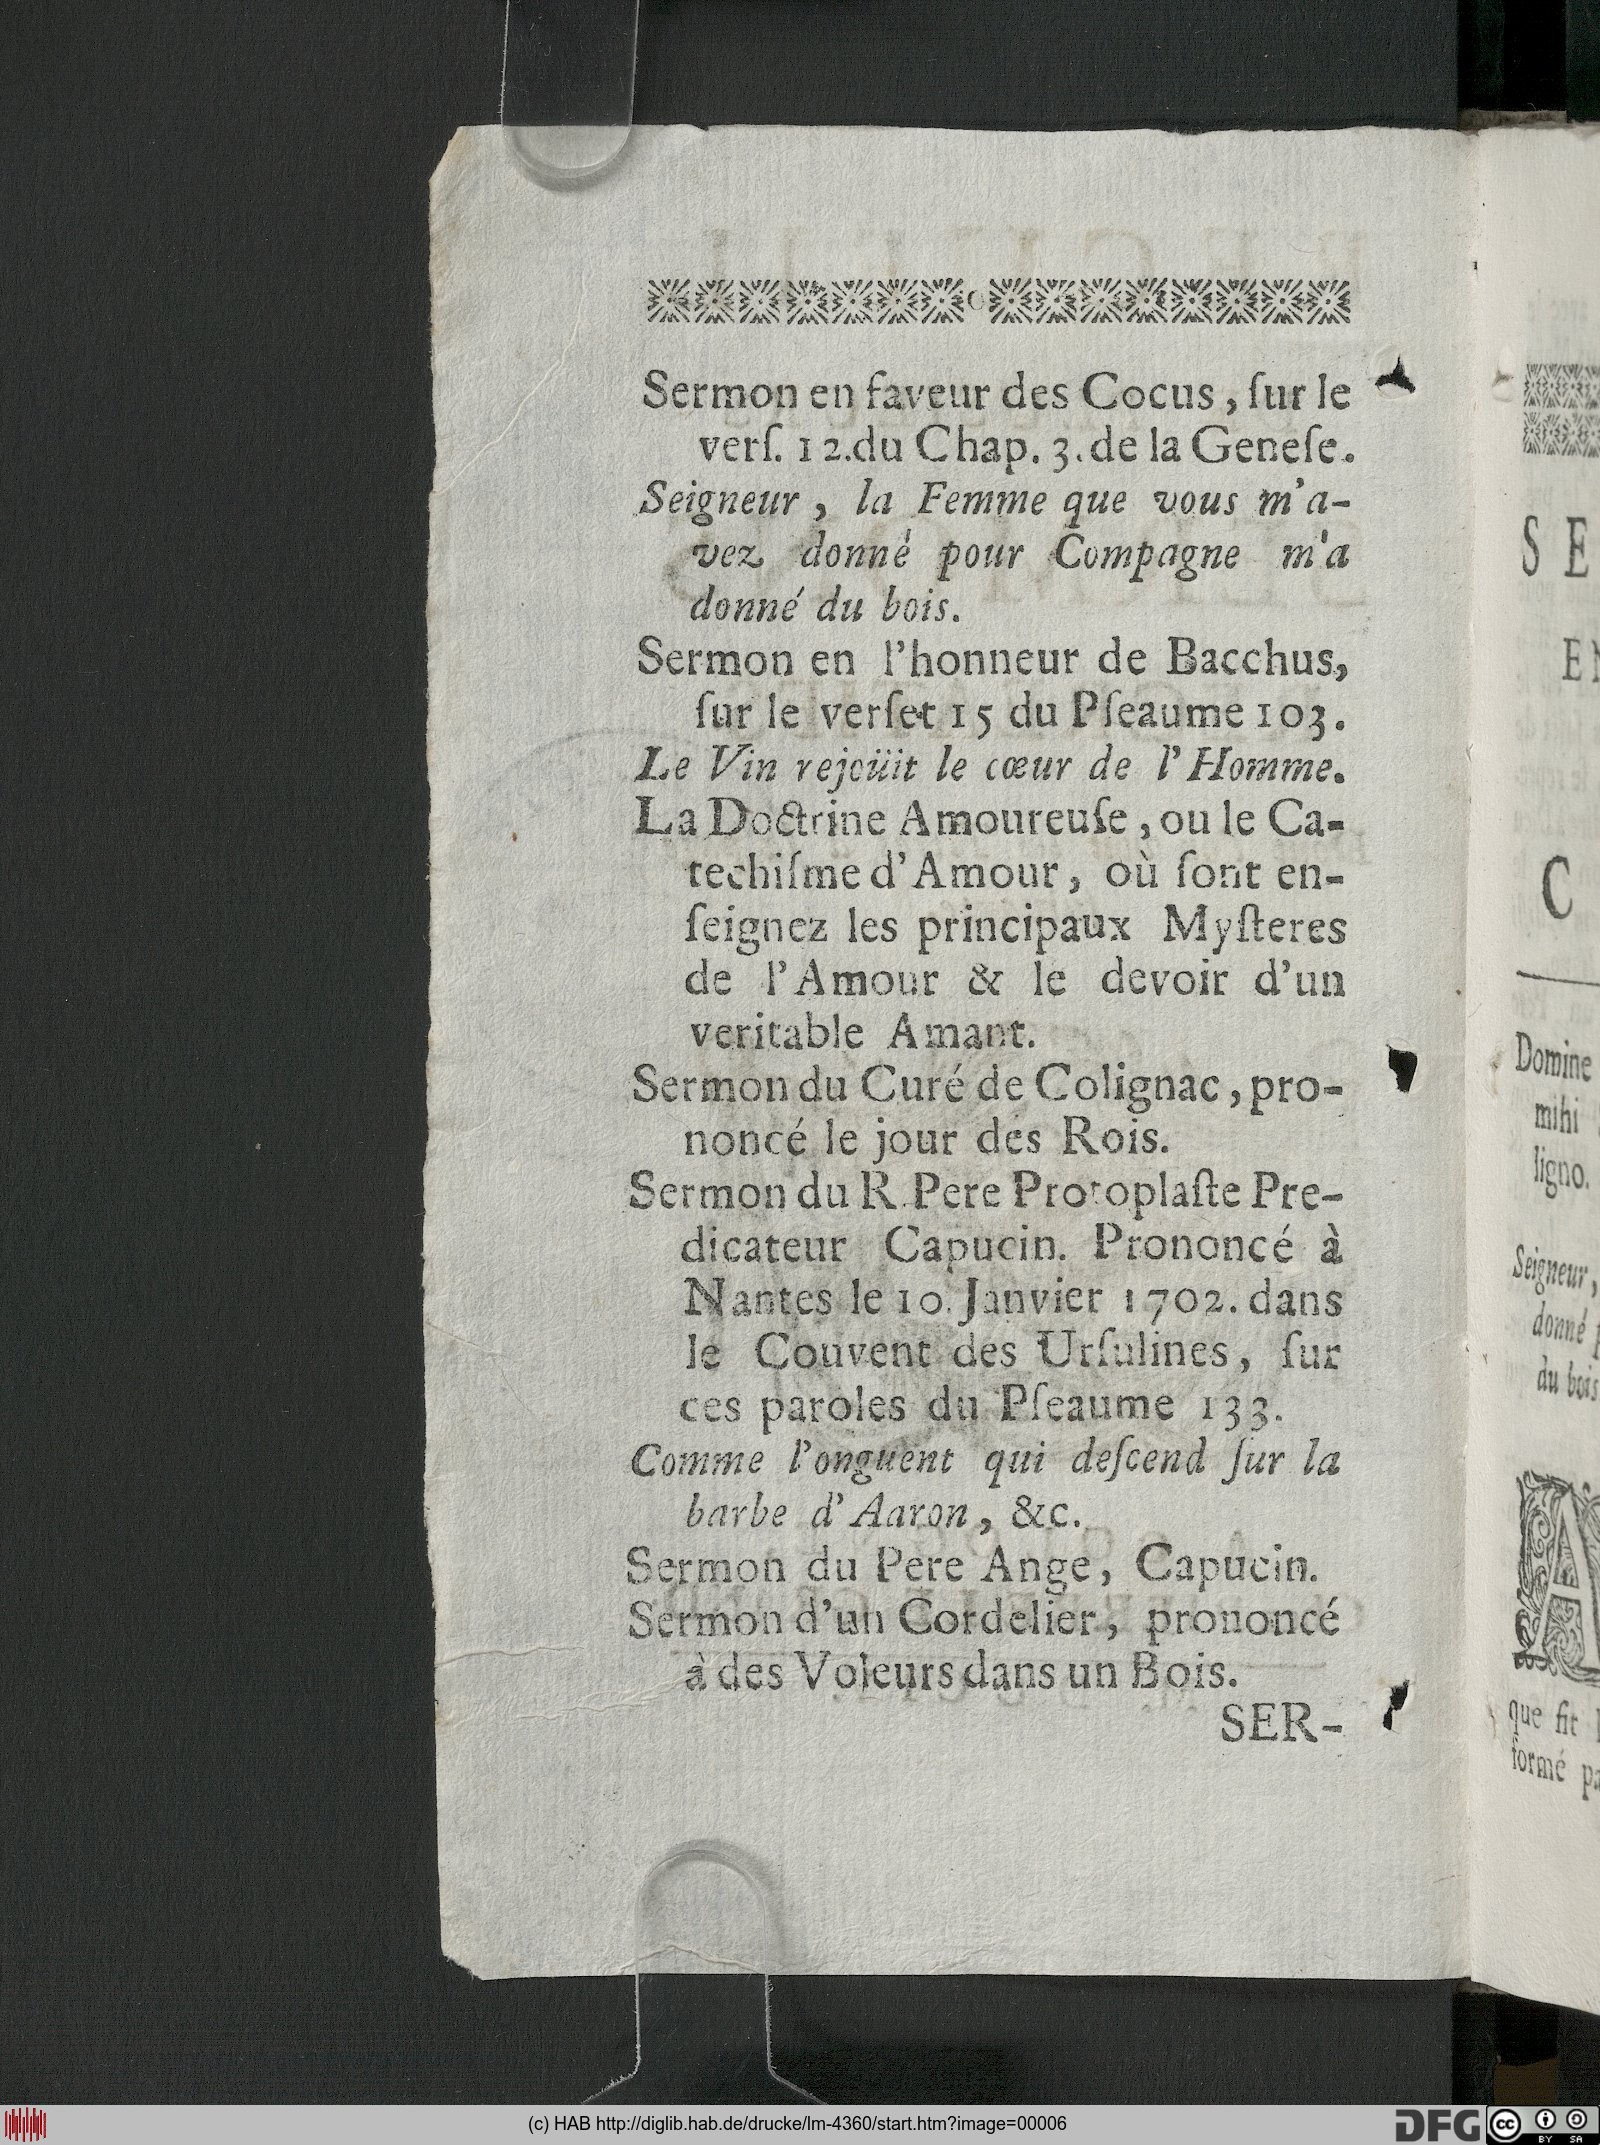 Sermon en faveur des Cocus, ſur le
verſ. 12. du Chap. 3. de la Geneſe.
Seigneur, la Femme que vous m'a-
vez donné pour Compagne m'a
donné du bois.
Sermon en l'honneur de Bacchus,
ſur le verſet 15 du Pſeaume 103.
Le Vin rejoüit le cœur de l'Homme.
La Doctrine Amoureuſe, ou le Ca-
techiſme d'Amour, où ſont en-
ſeignez les principaux Myſteres
de l'Amour & le devoir d'un
veritable Amant.
Sermon du Curé de Colignac, pro-
noncé le jour des Rois.
Sermon du R. Pere Protoplaſte Pre-
dicateur Capucin. Prononcé à
Nantes le 10. Janvier 1702. dans
le Couvent des Urſulines, ſur
ces paroles du Pſeaume 133.
Comme l'onguent qui deſcend ſur la
barbe d'Aaron, &c.
Sermon du Pere Ange, Capucin.
Sermon d'un Cordelier, prononcé
à des Voleurs dans un Bois.
SER-
S E
C
Domine
mihi
ligno.
Seigneur,
donné
du bois
que fit
formé
(c) HAB http://diglib.hab.de/drucke/lm-4360/start.htm?image=00006
DFG
cc
BY SA